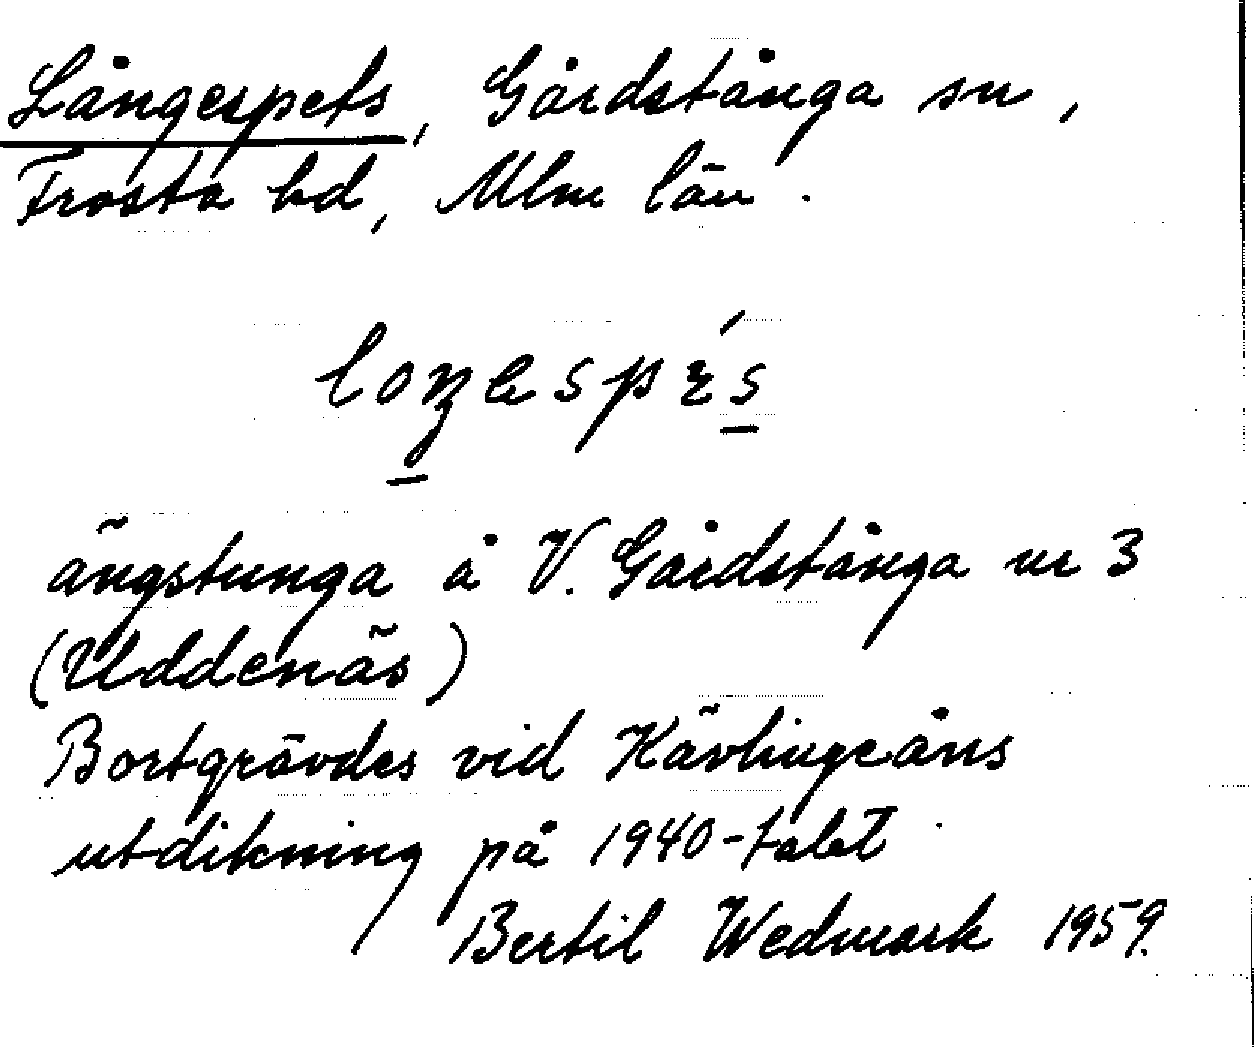 Långespets, Gårdstånga sn,
Frosta hd, Mlm län.
ängstunga å V. Gårdstånga nr 3
(Uddenäs)
Bortgrävdes vid Kävlingeåns
utdikning på 1940-talet.
Bertil Wedmark 1959.